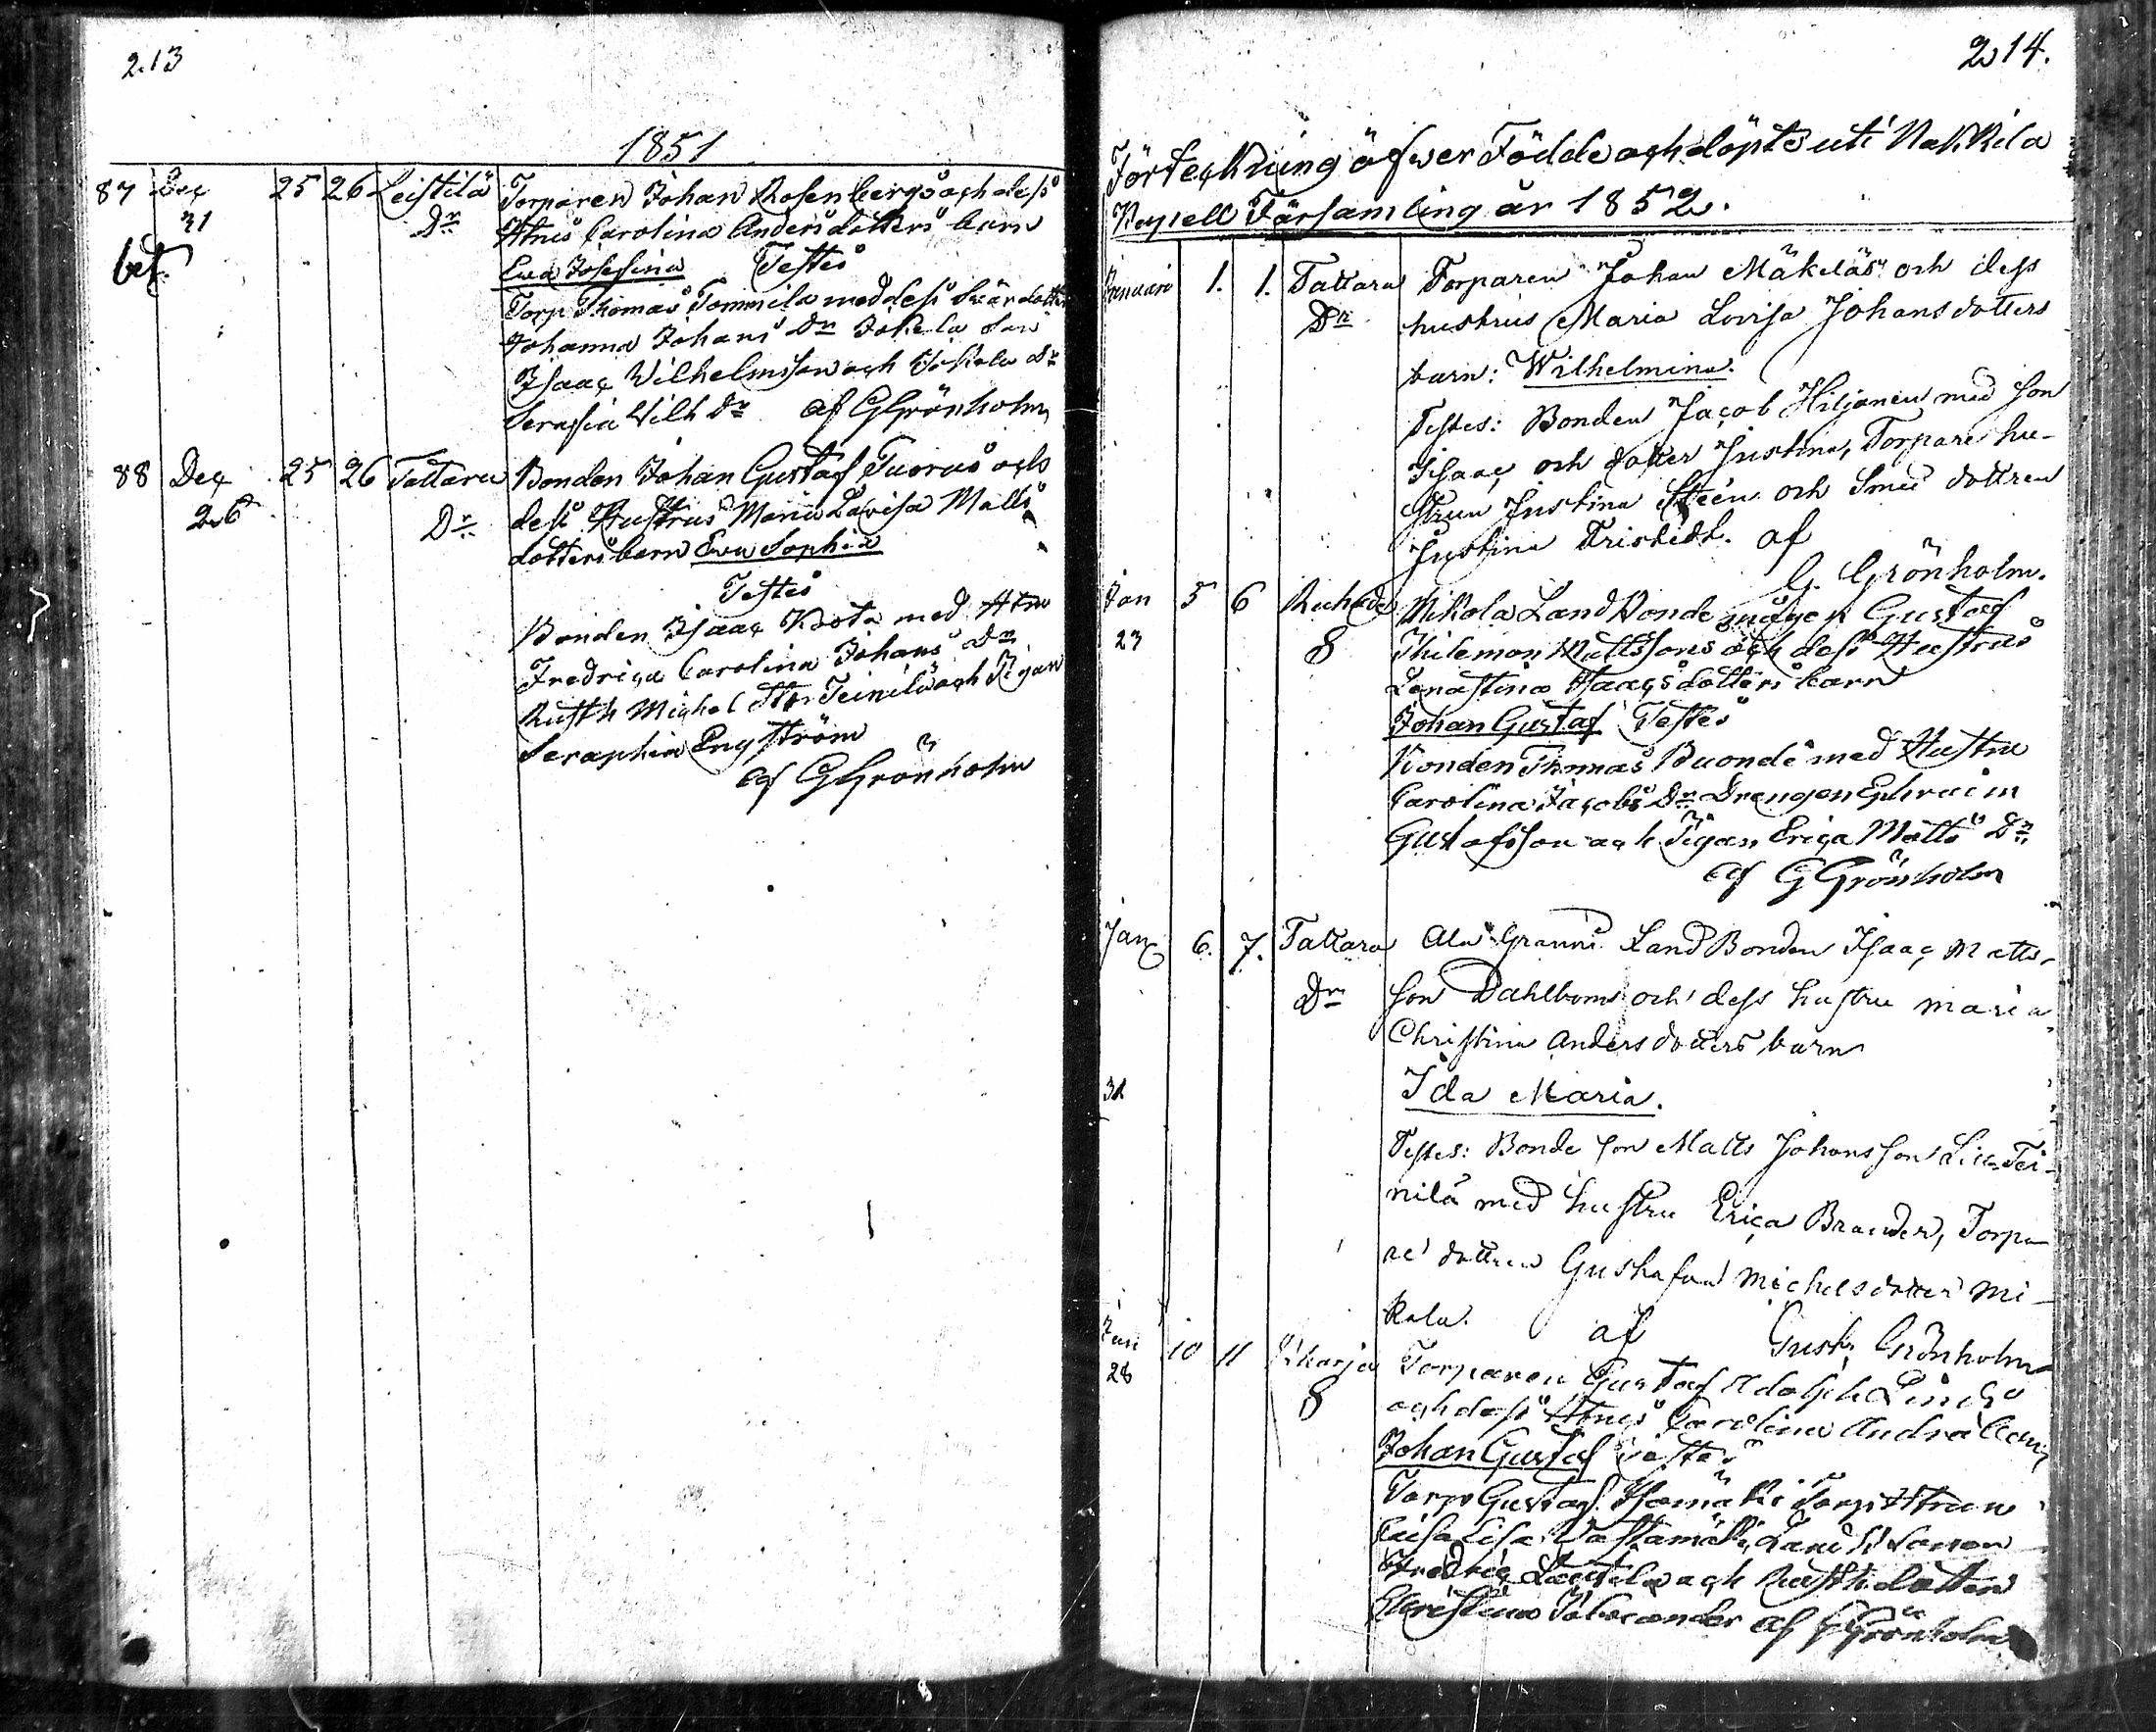 213
1851
87 Dec 25 26 Leistilä Torparen Johan Rosenbergs och dess
31 Dr Hrus Carolina Anders dotters barn
bet. Ewa Josefina Testes
Torp Thomas Tommila med dess Swärdotter
Johanna Johans Dr Jokela Son
Isaac Wilhelmsson och Jokela Dr
Serafia Wilh Dr af GGrönholm
88 Dec 25 26 Tattara Bonden Johan Gustaf Tuorus och
26 Dr dess Hustrus Maria Lovisa Matts
dotters barn Ewa Sophia
Testes
Bonden Isaac Knota med Htru
Fredrica Carolina Johans Dr
Rusth Michel Teinilä och Pigan
Seraphia Engström
af GGrönholm
214.
Förteckning öfwer Födde och döpte uti Nakkila
Kapell Församling år 1852.
Januari 1. 1. Tattara Torparen Johan Mäkeläs och dess
Dr hustrus Maria Lovisa Johansdotters
barn: Wilhelmina.
Testes: Bonden Jacob Hiljanen med son
Isaac och dotter Justina, Torpare hu-
strun Justina Steen och Smed dottren
Justina Fristedt. af
G. Grönholm.
Jan 5 6 Mikola Land Bonde mågen Gustaf
23 S Thilemon Mattssons och dess Hustrus
Lenastina Isaacs dotters barn
Johan Gustaf Testes
Bonden Thomas Buonde med Hustru
Carolina Jacobs Dr Drengen Ephraim
Gustafsson och Pigan Erica Matts Dr
af G Grönholm
Jan 6. 7. Tattara Ala Granni Land Bonden Isaac Matts-
Dr son Dahlboms och dess hustru Maria
Christina Anders dotters barn
31 Ida Maria.
Testes: Bonde son Matts Johansson Tei-
nilä med hustru Erica Brander, Torpa-
re dottren Gustafva Michelsdotter Mi-
kola. af Gust. Grönholm
Jan 10 11 Torparen Gustaf Adolph Linds
28 S och dess Htrus Carolina Andrä barn
Johan Gustaf Testes
Torp Gustaf Isomäki Torp Htrun
Lisa Land B Sonen
Fredric och Rusth dotter
Christina af GGrönholm